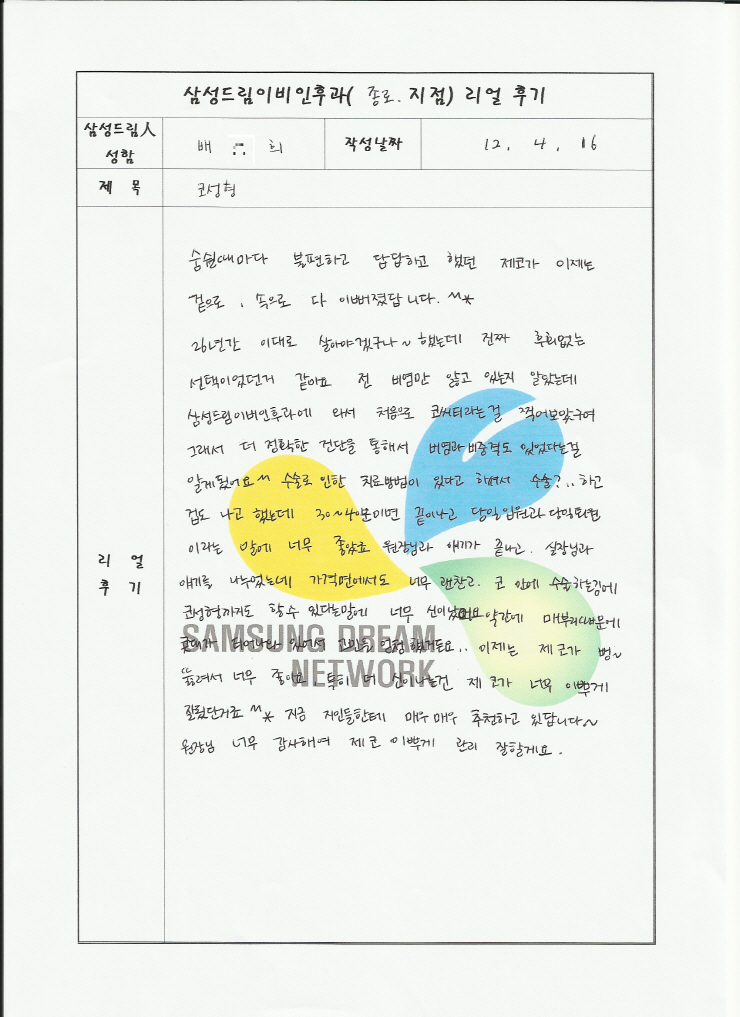 삼성드림이비인후과( 종로. 지점) 리얼 후기
삼성드림人 성함
배 희
작성날짜
12. 4. 16
제 목
코성형
리 얼 후 기
숨쉴때마다 불편하고 답답하고 했던 제코가 이제는
겉으로, 속으로 다 이뻐졌답니다. ^^*
26년간 이대로 살아야겠구나~ 했는데 진짜 후회없는
선택이었던거 같아요 전 비염만 앓고 있는지 알았는데
삼성드림이비인후과에 와서 처음으로 코씨티라는걸 찍어보았구여
그래서 더 정확한 진단을 통해서 비염과 비중격도 있었다는걸
알게됐어요^^ 수술로 인한 치료방법이 있다고 하셔서 수술?.. 하고
겁도 나고 했는데 30~40분이면 끝이나고 당일입원과 당일퇴원
이라는 말에 너무 좋았죠 원장님과 얘기가 끝나고. 실장님과
얘기를 나누었는데 가격면에서도 너무 괜찮고. 코 안에 수술하는김에
코성형까지도 할수 있다는말에 너무 신이났어요 약간에 매부리때문에
콧대가 튀어나와 있어서 고민을 엄청했거든요.. 이제는 제 코가 뻥~
뚫려서 너무 좋아요. 특히 더 신이나는건 제 코가 너무 이쁘게
잘됐단거죠 ^^* 지금 지인들한테 매우 매우 추천하고 있답니다~
원장님 너무 감사해여 제 코 이쁘게 관리 잘할게요.
SAMSUNG DREAM
NETWORK